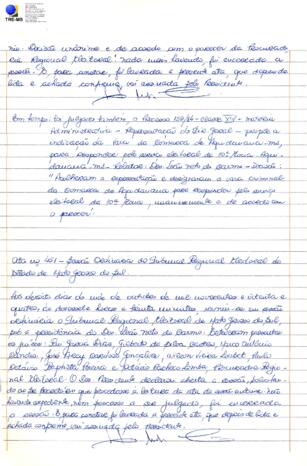 TRE-MS
rio. Decisão unânime e de acordo com o parecer da Procurado-
ria Regional Eleitoral". Nada mais havendo, foi encerrada a
sessão. E, para constar, foi lavrada a presente ata, que depois de
lida e achada conforme, vai assinada pelo Presidente.
Em tempo: foi julgado também, o Processo classe XIV - matéria
Administrativa - Representação do Juiz Geral - pede a
indicação da Vara da Comarca de Aquidauana-MS,
para responder pelo serviço eleitoral da 10ª Zona - Aqui-
dauana - MS - Relator: Des. João do Carmo - Decisão:
"Acolheram a representação e designaram a vara criminal
da Comarca de Aquidauana para responder pelo serviço
eleitoral da 10ª Zona, unanimemente e de acordo com
o parecer".
Ata nº 451 - Sessão Ordinária do Tribunal Regional Eleitoral do
Estado de Mato Grosso do Sul.
Aos dias do mês de outubro de mil novecentos e oitenta e
quatro, às dezessete horas e trinta minutos, reuniu-se em sessão
ordinária o Tribunal Regional Eleitoral de Mato Grosso do Sul,
sob a presidência do Des. João do Carmo. Estiveram presentes
os juízes: Rui Garcia Dias, Gilberto da Silva Castro,
José Gonçalves,
Baptista Pereira e Rocha Lomba, Procurador Regio-
nal Eleitoral. O Des. Presidente declarou aberta a sessão,
leitura da ata da sessão anterior. Não
havendo expediente, nem processo a ser julgado, foi encerrada
a sessão. E, para constar, foi lavrada a presente ata, que depois de lida e
achada conforme, vai assinada pelo Presidente.